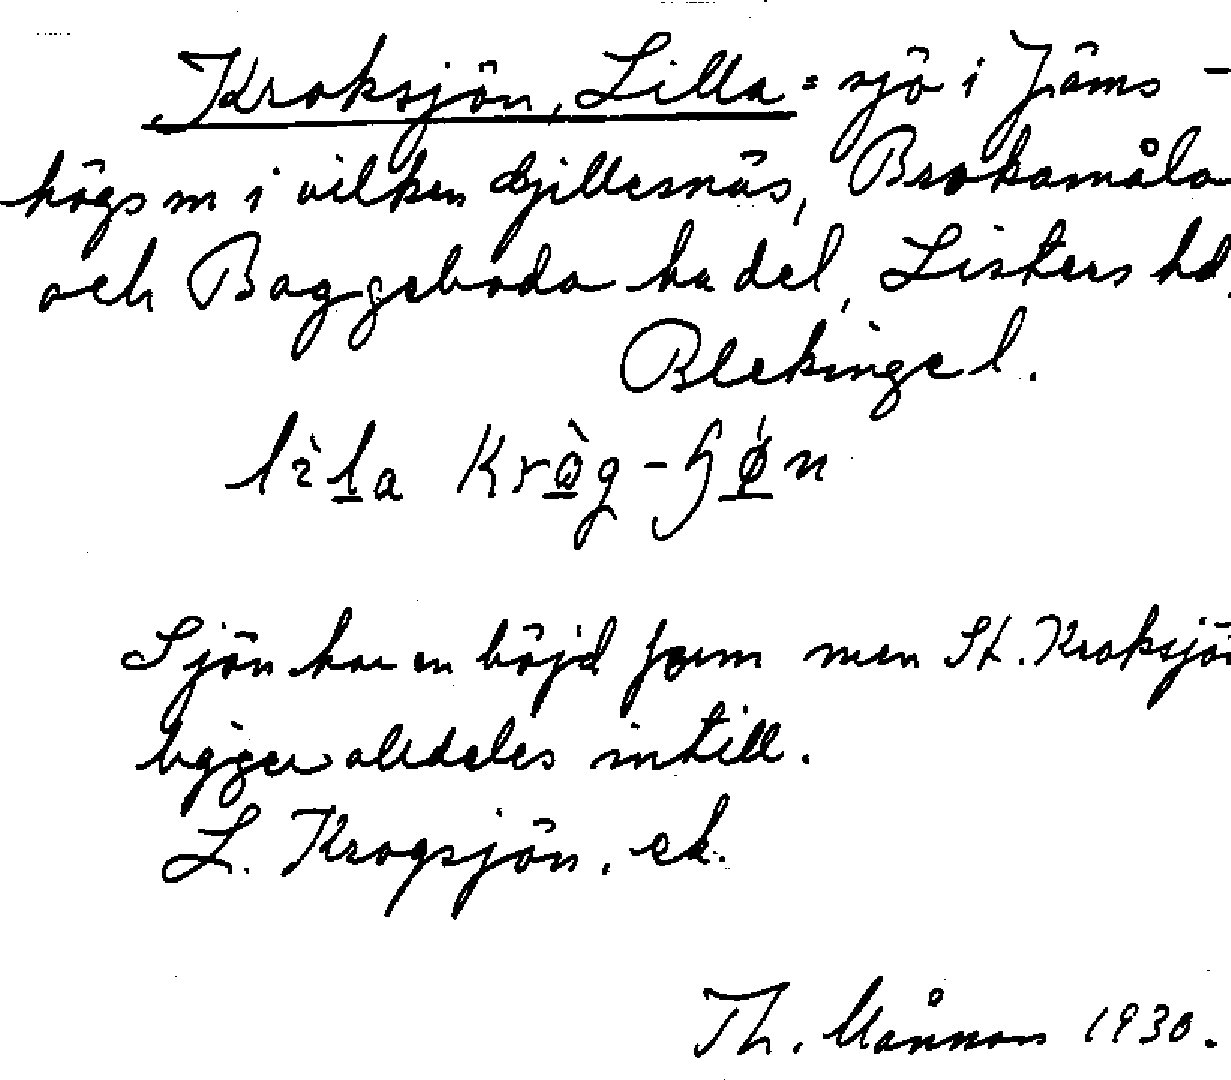 Kroksjön, Lilla = sjö i Jäms-
högs sn i vilken Gyillesnäs, Brokamåla
och Baggeboda ha del, Listers hd.
Blekinge l.
lìla Kròg-
Sjön har en böjd form men St. Kroksjön
ligger alldeles intill.
L. Krogsjön. ek.
Th. Månsson 1930.